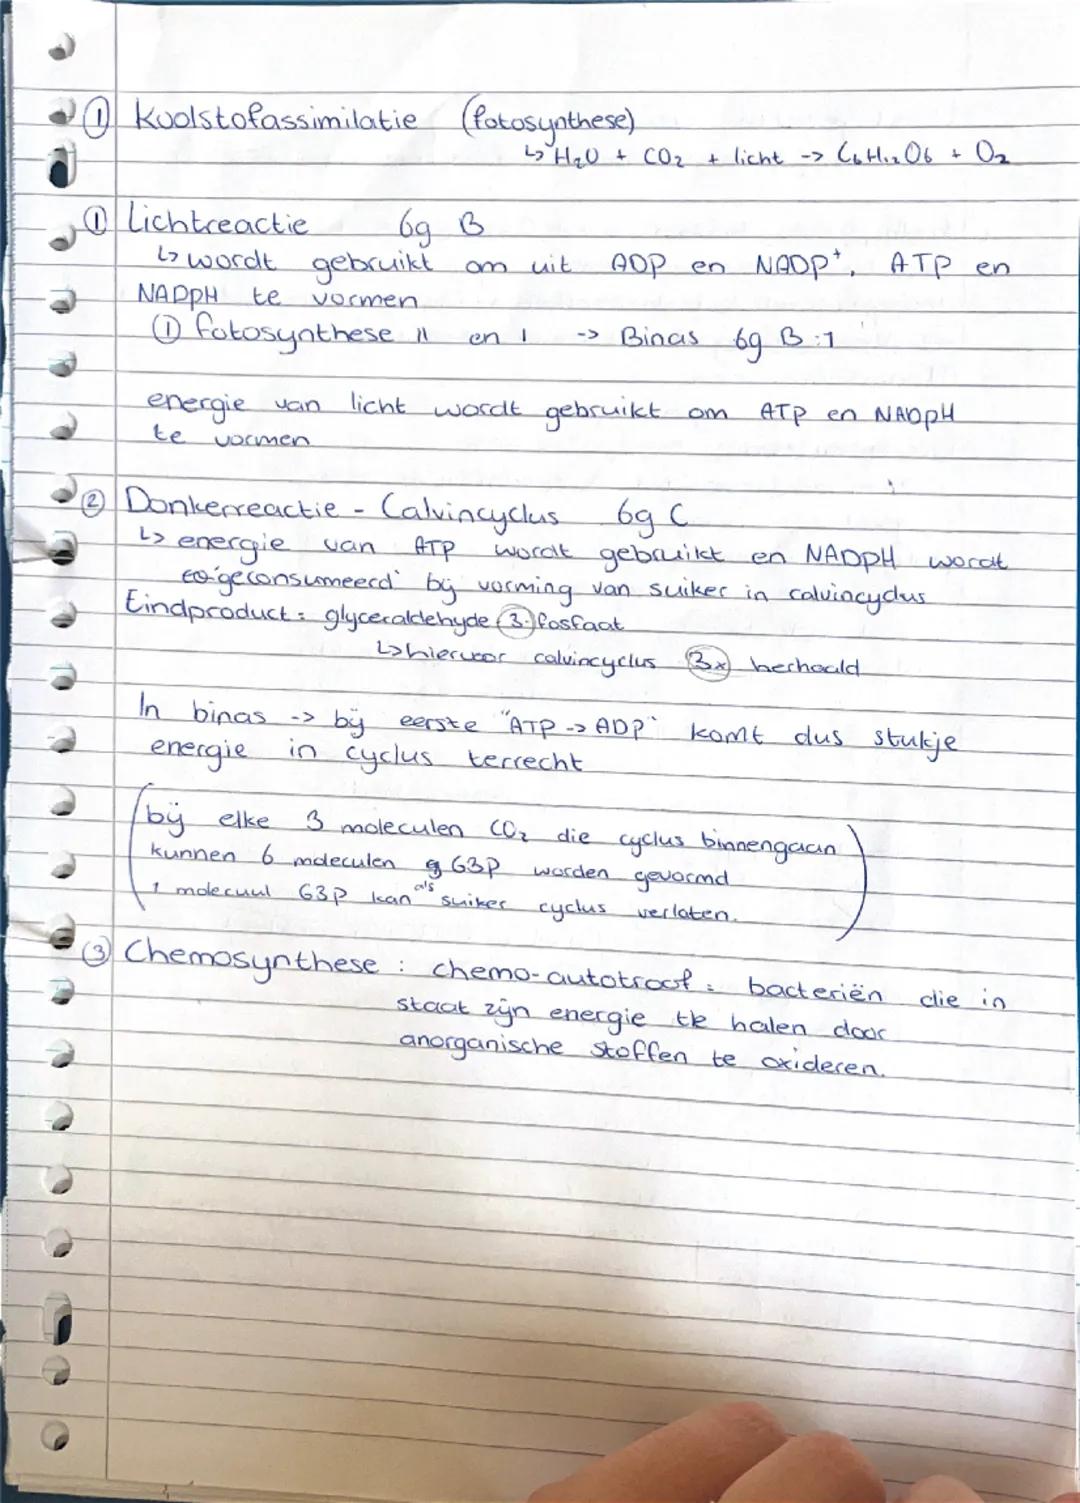 ① Koolstofassimilatie (fotosynthese)
↳ H₂O + CO₂ + licht -> C₆H₁₂O6 + O₂
① Lichtreactie 69 B
↳ wordt gebruikt om uit ADP en NADP⁺, ATP en
NADPH te vormen
① fotosynthese II en I -> Binas 69 B:1
energie van licht wordt gebruikt om ATP en NADPH
te vormen
② Donkerreactie - Calvincyclus 69 C
↳ energie van ATP wordt gebruikt en NADPH wordt
geconsumeerd bij vorming van suiker in calvincyclus
Eindproduct: glyceraldehyde 3-fosfaat
↳ hiervoor calvincyclus 3x herhaald
In binas -> bij eerste "ATP -> ADP" komt dus stukje
energie in cyclus terrecht
(bij elke 3 moleculen CO₂ die cyclus binnengaan
kunnen 6 moleculen G3P worden gevormd
1 molecuul G3P kan als suiker cyclus verlaten.)
③ Chemosynthese : chemo-autotroof : bacteriën die in
staat zijn energie te halen door
anorganische stoffen te oxideren.